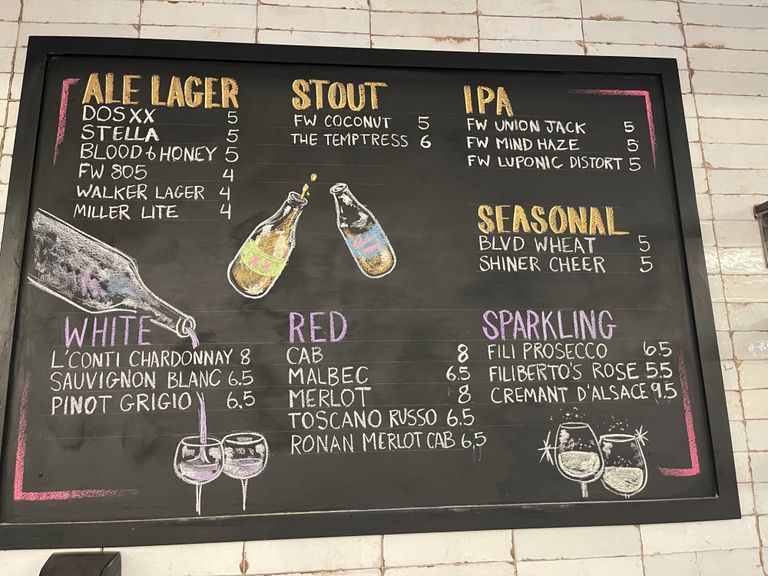 ALE LAGER
DOS XX 5
STELLA 5
BLOOD & HONEY 5
FW 805 4
WALKER LAGER 4
MILLER LITE 4
STOUT
FW COCONUT 5
THE TEMPTRESS 6
IPA
FW UNION JACK 5
FW MIND HAZE 5
FW LUPONIC DISTORT 5
SEASONAL
BLVD WHEAT 5
SHINER CHEER 5
WHITE
L'CONTI CHARDONNAY 8
SAUVIGNON BLANC 6.5
PINOT GRIGIO 6.5
RED
CAB 8
MALBEC 6.5
MERLOT 8
TOSCANO RUSSO 6.5
RONAN MERLOT CAB 6.5
SPARKLING
FILI PROSECCO 6.5
FILIBERTO'S ROSE 5.5
CREMANT D'ALSACE 9.5